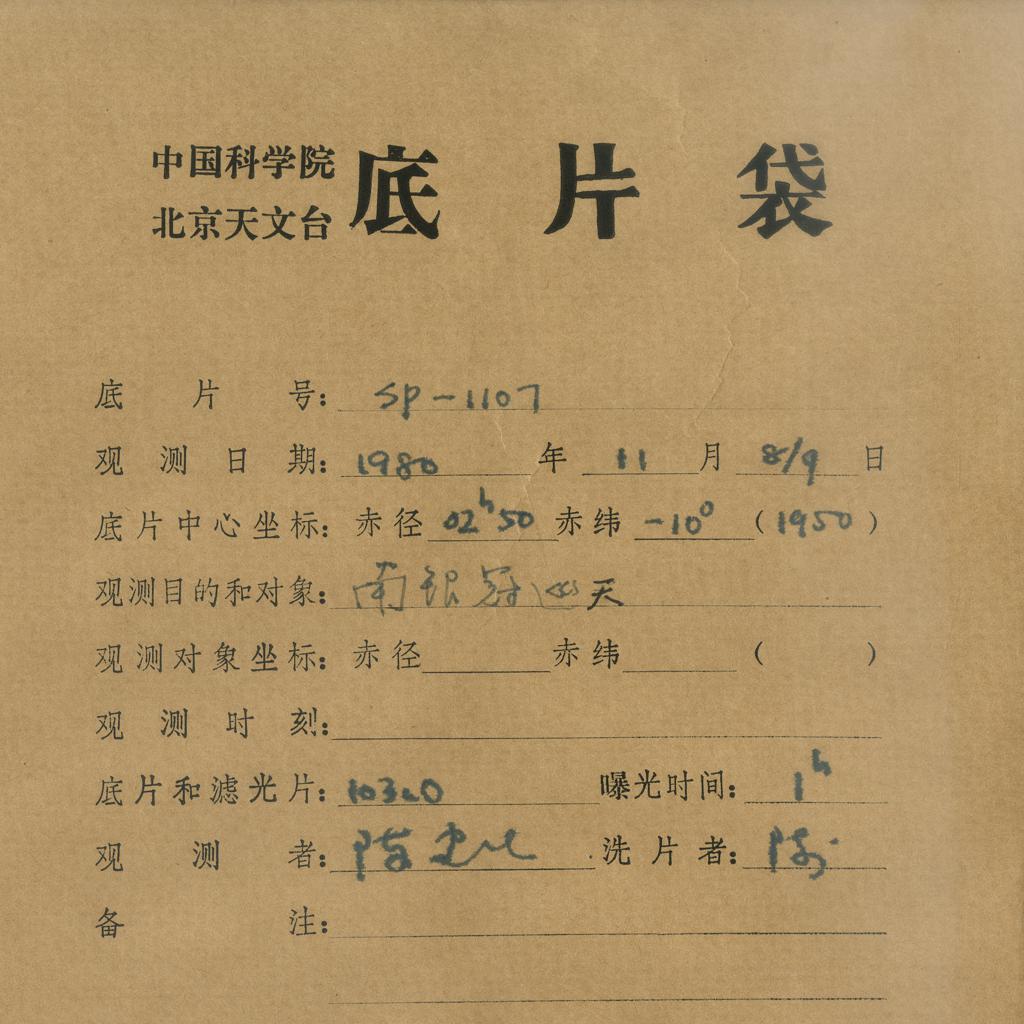 中国科学院
北京天文台
底片袋
底片号: SP-1107
观测日期: 1980 年 11 月 8/9 日
底片中心坐标: 赤径 02ʰ50 赤纬 -10⁰ (1950)
观测目的和对象: 南银冠巡天
观测对象坐标: 赤径 赤纬 ( )
观测时刻:
底片和滤光片: 103aO 曝光时间: 1ʰ
观测者: 陈 洗片者: 陈
备注: